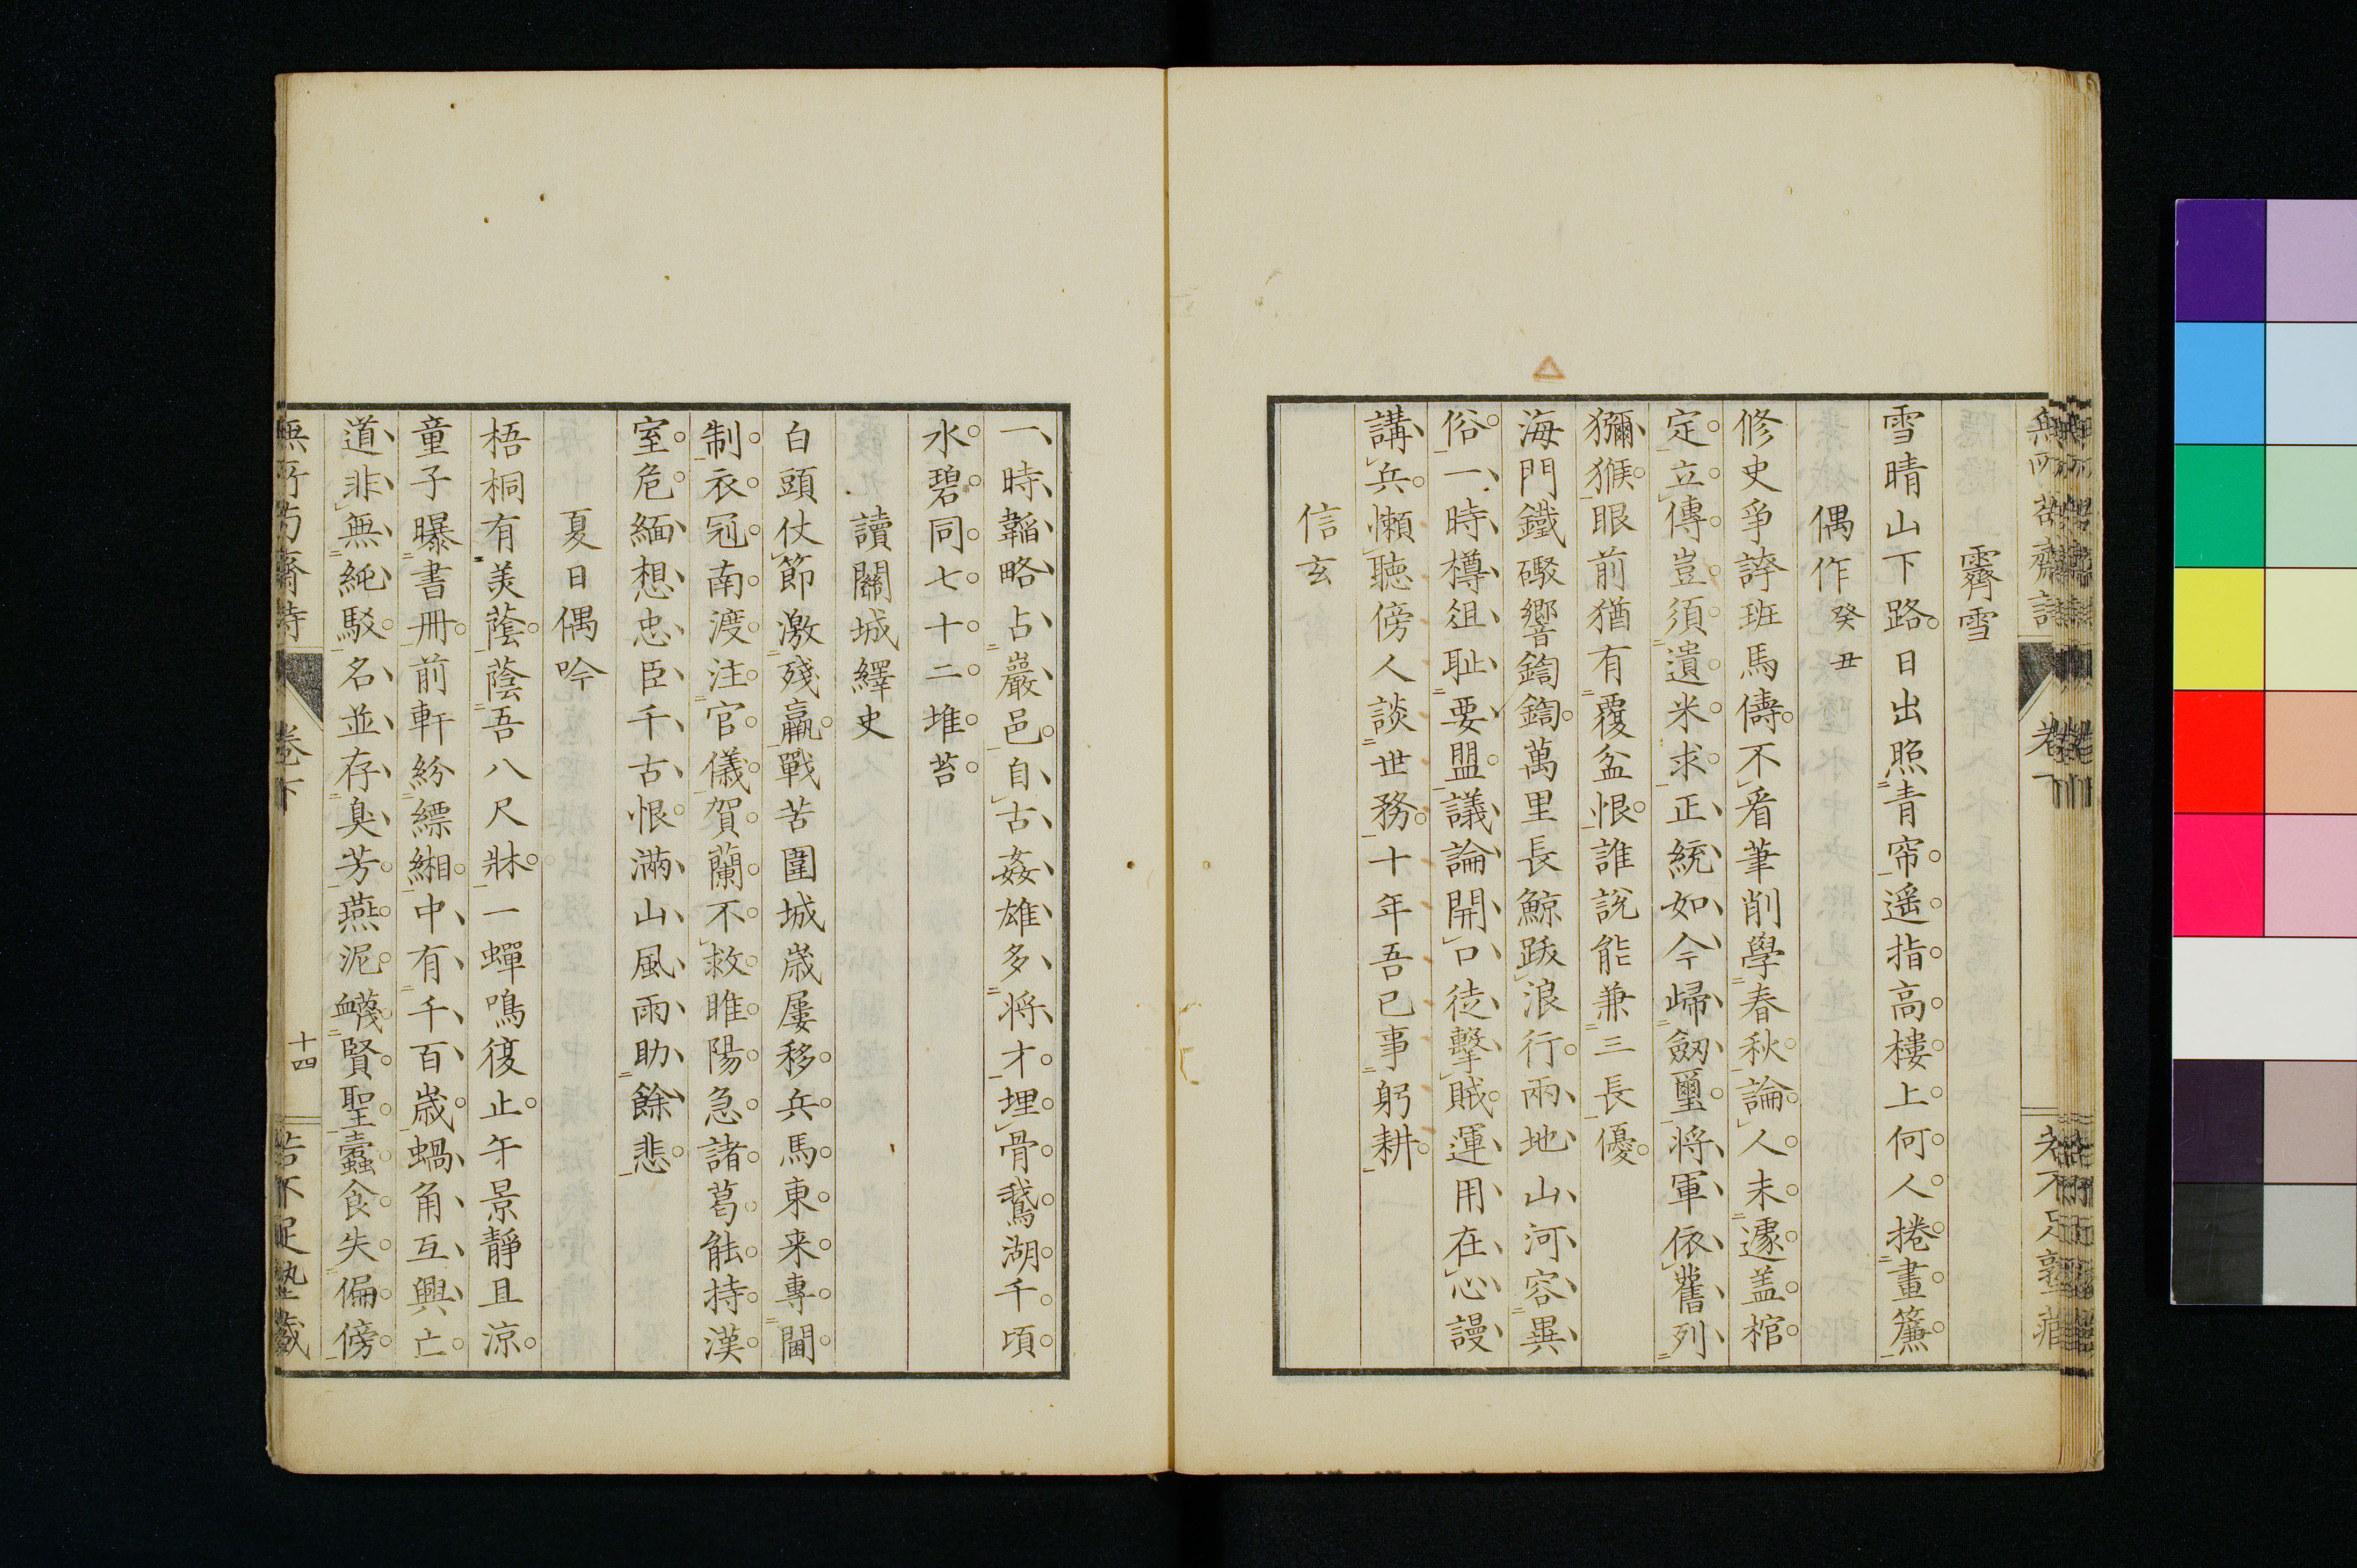 霽雪
雪晴山下路日出照青帘遥指高樓上何人捲畫簾
偶作癸丑
修史爭誇班馬儔不看筆削學春秋論人未遽盖棺
定立傳豈須遺米求正統如今歸劔璽将軍依舊列
獼猴眼前猶有覆盆恨誰說能兼三長優
海門鐵礟響鍧鍧萬里長鯨跋浪行兩地山河容異
俗一時樽俎耻要盟議論開口徒擊賊運用在心謾
講兵懶聴傍人談世務十年吾已事躬耕
信玄
一時韜略占巖邑自古姦雄多将才埋骨鵞湖千頃
水碧同七十二堆苔
讀關城繹史
白頭仗節激殘羸戰苦圍城歳屡移兵馬東来專閫
制衣冠南渡注官儀賀蘭不救睢陽急諸葛能持漢
室危緬想忠臣千古恨滿山風雨助餘悲
夏日偶吟
梧桐有美蔭蔭吾八尺牀一蟬鳴復止午景靜且涼
童子曝書冊前軒紛縹緗中有千百歳蝸角互興亡
道非無純駁名並存臭芳燕泥衊賢聖蠹食失偏傍
無所苟齋詩
卷下
十四
若不足塾藏